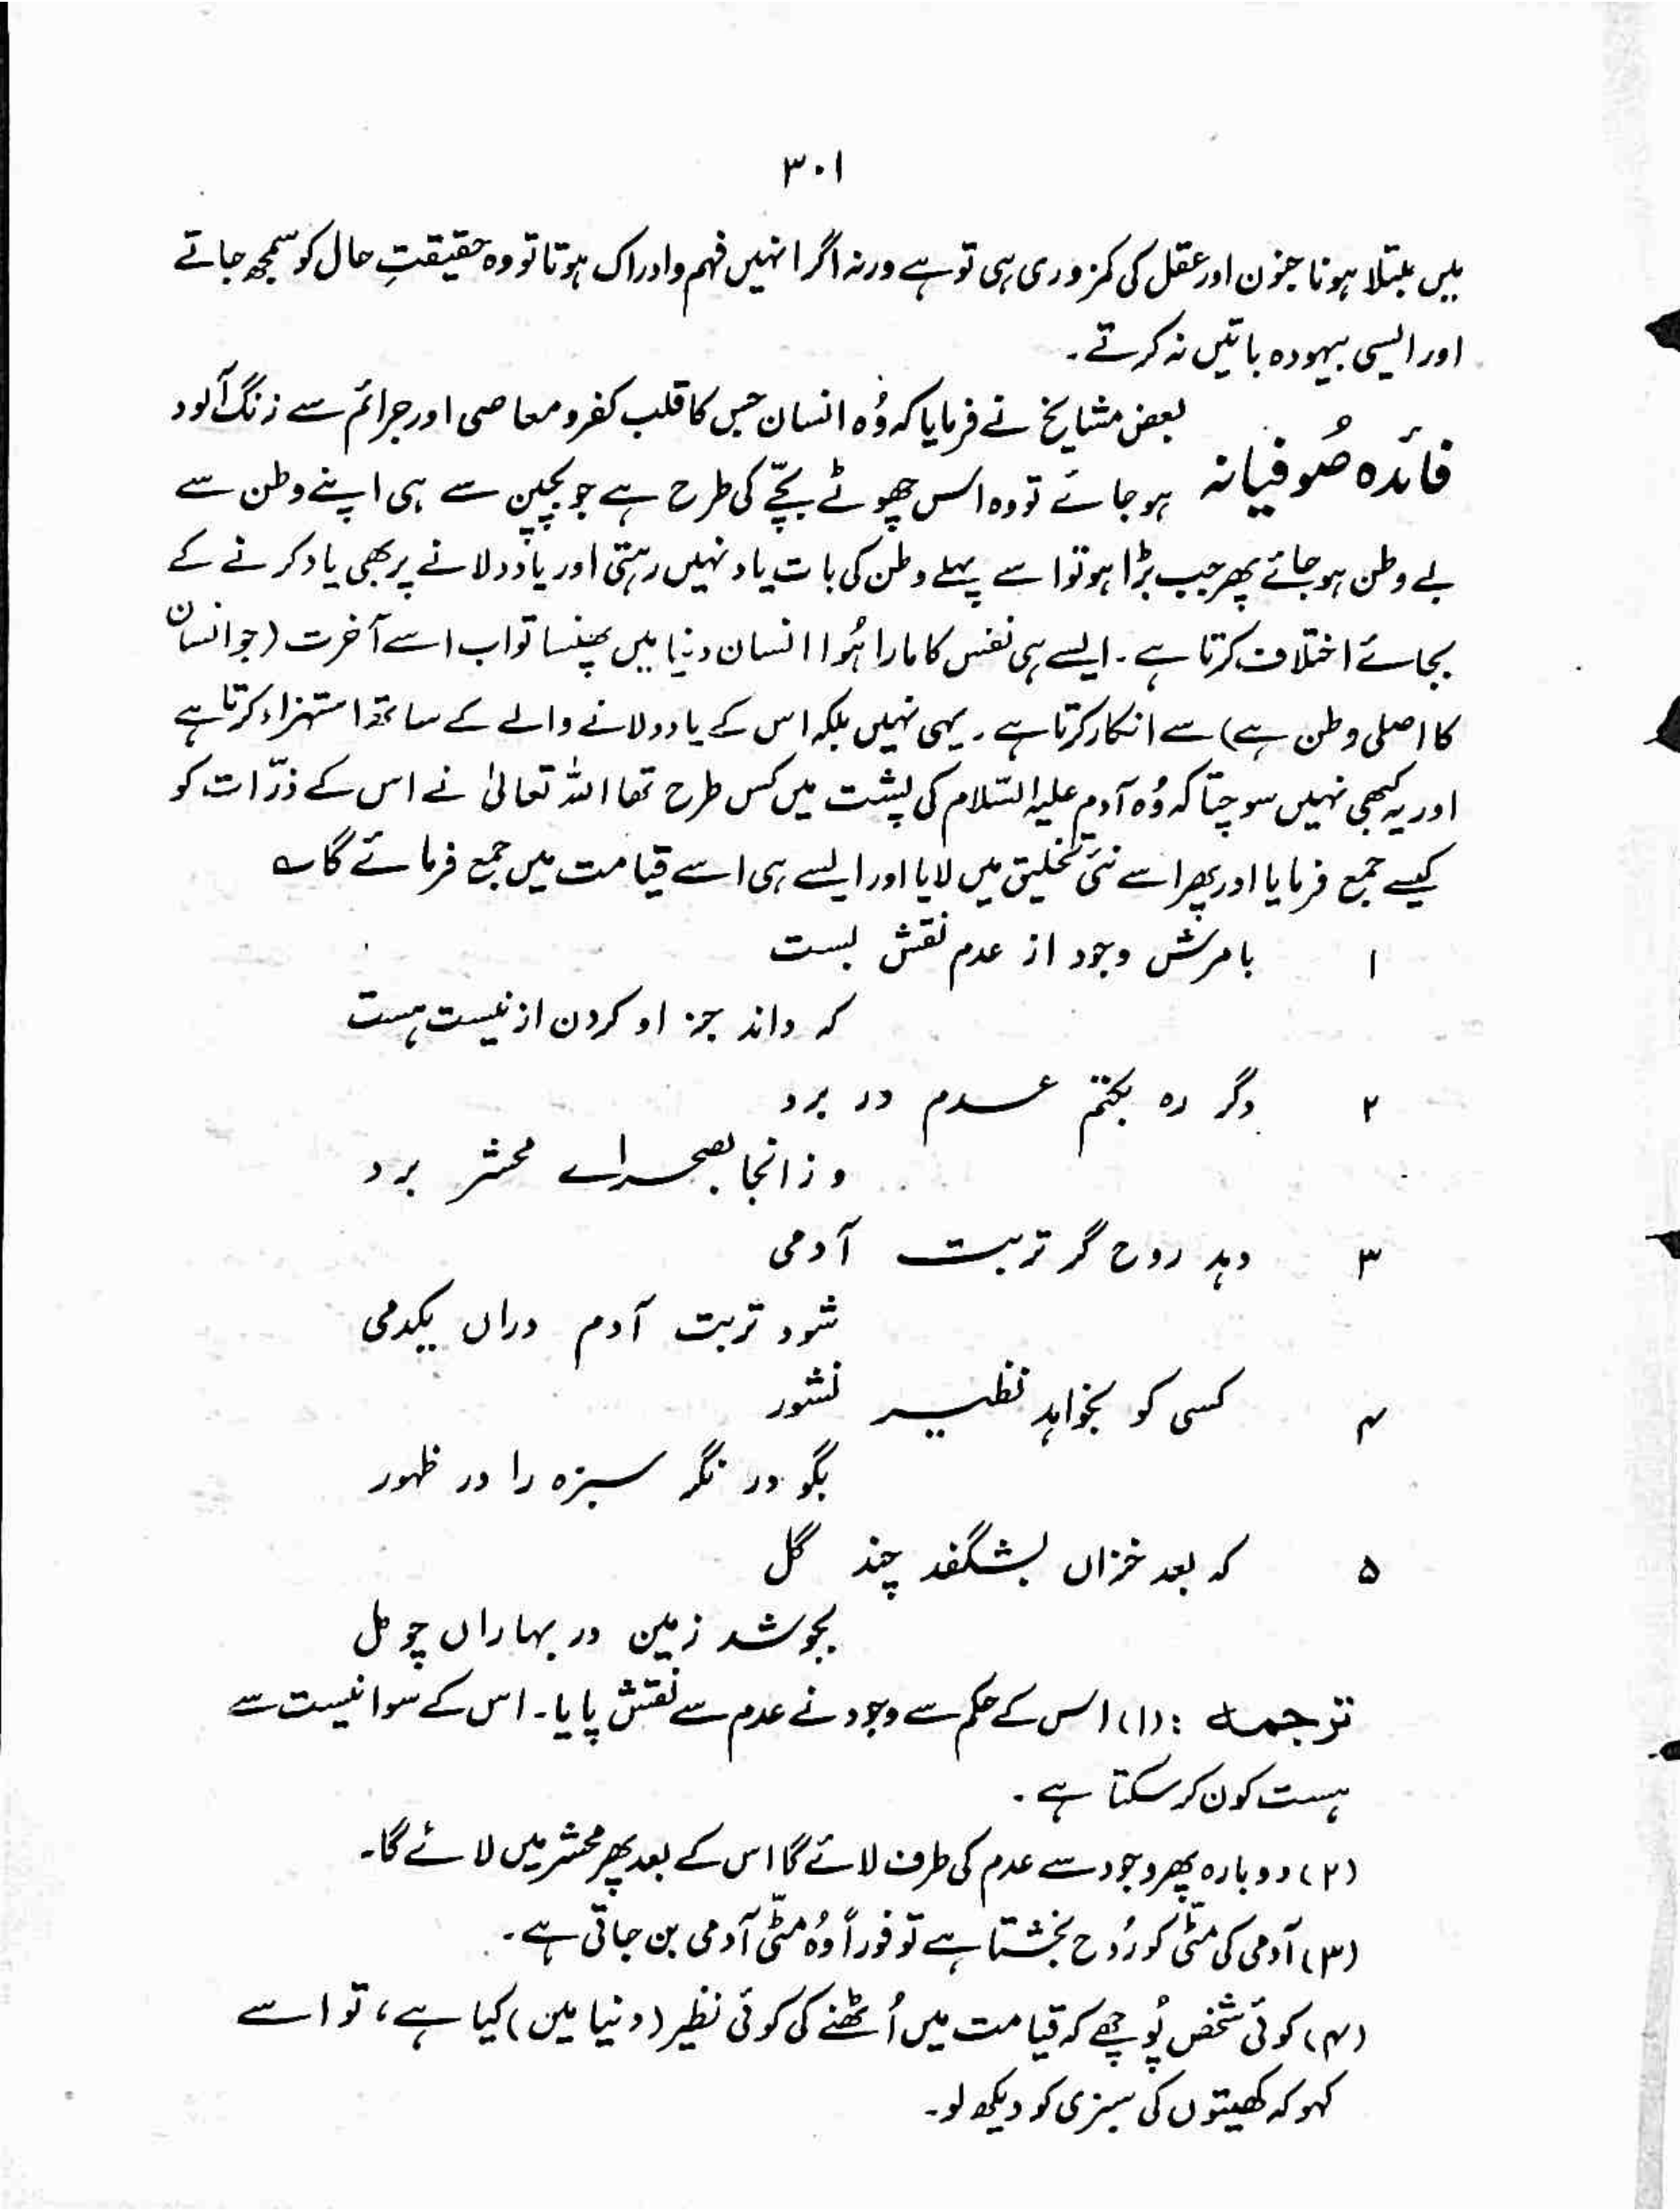 ۳۰۱
میں مبتلا ہونا جنون اور عقل کی کمزوری ہی تو ہے ورنہ اگر انہیں فہم و ادراک ہوتا تو وہ حقیقتِ حال کو سمجھ جاتے
اور ایسی بیہودہ باتیں نہ کرتے۔
بعض مشایخ نے فرمایا کہ وُہ انسان جس کا قلب کفر و معاصی اور جرائم سے زنگ آلود
فائدہ صُوفیانہ ہو جائے تو وہ اس چھوٹے بچّے کی طرح ہے جو بچپن سے ہی اپنے وطن سے
بے وطن ہو جائے پھر جب بڑا ہو تو اسے پہلے وطن کی بات یاد نہیں رہتی اور یاد دلانے پر بھی یاد کرنے کے
بجائے اختلاف کرتا ہے۔ ایسے ہی نفس کا مارا ہُوا انسان دنیا میں پھنسا تو اب اسے آخرت (جو انسان
کا اصلی وطن ہے) سے انکار کرتا ہے۔ یہی نہیں بلکہ اس کے یاد دلانے والے کے ساتھ استہزاء کرتا ہے
اور یہ کبھی نہیں سوچتا کہ وُہ آدم علیہ السّلام کی پشت میں کس طرح تھا اللہ تعالیٰ نے اس کے ذرّات کو
کیسے جمع فرمایا اور پھر اسے نئی تخلیق میں لایا اور ایسے ہی اسے قیامت میں جمع فرمائے گا ؎
۱ بامرش وجود از عدم نقش بست
کہ داند جز او کردن از نیست ہست
۲ دگر رہ بکتم عدم در برد
وزانجا بصحراے محشر برد
۳ دہد روح گر تربت آدمی
شود تربت آدم دراں یکدمی
۴ کسی کو بخواہد نظیر نشور
بگو در نگر سبزہ را در ظہور
۵ کہ بعد خزاں بشگفد چند گل
بجوشد زمین در بہاراں چو مل
ترجمہ : (۱) اس کے حکم سے وجود نے عدم سے نقش پایا۔ اس کے سوا نیست سے
ہست کون کر سکتا ہے۔
(۲) دوبارہ پھر وجود سے عدم کی طرف لائے گا اس کے بعد پھر محشر میں لائے گا۔
(۳) آدمی کی مٹّی کو رُوح بخشتا ہے تو فوراً وُہ مٹّی آدمی بن جاتی ہے۔
(۴) کوئی شخص پُوچھے کہ قیامت میں اُٹھنے کی کوئی نظیر (دنیا میں) کیا ہے، تو اسے
کہو کہ کھیتوں کی سبزی کو دیکھ لو۔